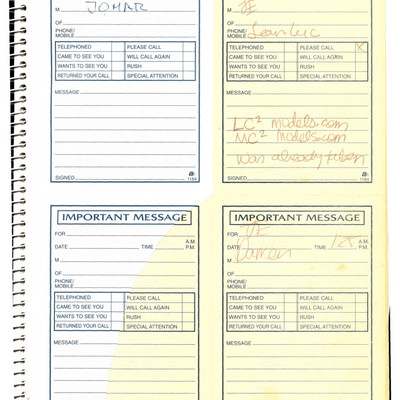 M JOMAR
OF
PHONE/
MOBILE
TELEPHONED PLEASE CALL
CAME TO SEE YOU WILL CALL AGAIN
WANTS TO SEE YOU RUSH
RETURNED YOUR CALL SPECIAL ATTENTION
MESSAGE
SIGNED 1184
M JE
OF
PHONE/
MOBILE Jean Luc
TELEPHONED PLEASE CALL X
CAME TO SEE YOU WILL CALL AGAIN
WANTS TO SEE YOU RUSH
RETURNED YOUR CALL SPECIAL ATTENTION
MESSAGE
LC² models.com
MC² models.com
was already taken
SIGNED 1184
IMPORTANT MESSAGE
FOR
DATE TIME A.M.
P.M.
M
OF
PHONE/
MOBILE
TELEPHONED PLEASE CALL
CAME TO SEE YOU WILL CALL AGAIN
WANTS TO SEE YOU RUSH
RETURNED YOUR CALL SPECIAL ATTENTION
MESSAGE
IMPORTANT MESSAGE
FOR JE
DATE TIME A.M.
P.M.
M Darren
OF
PHONE/
MOBILE
TELEPHONED PLEASE CALL
CAME TO SEE YOU WILL CALL AGAIN
WANTS TO SEE YOU RUSH
RETURNED YOUR CALL SPECIAL ATTENTION
MESSAGE